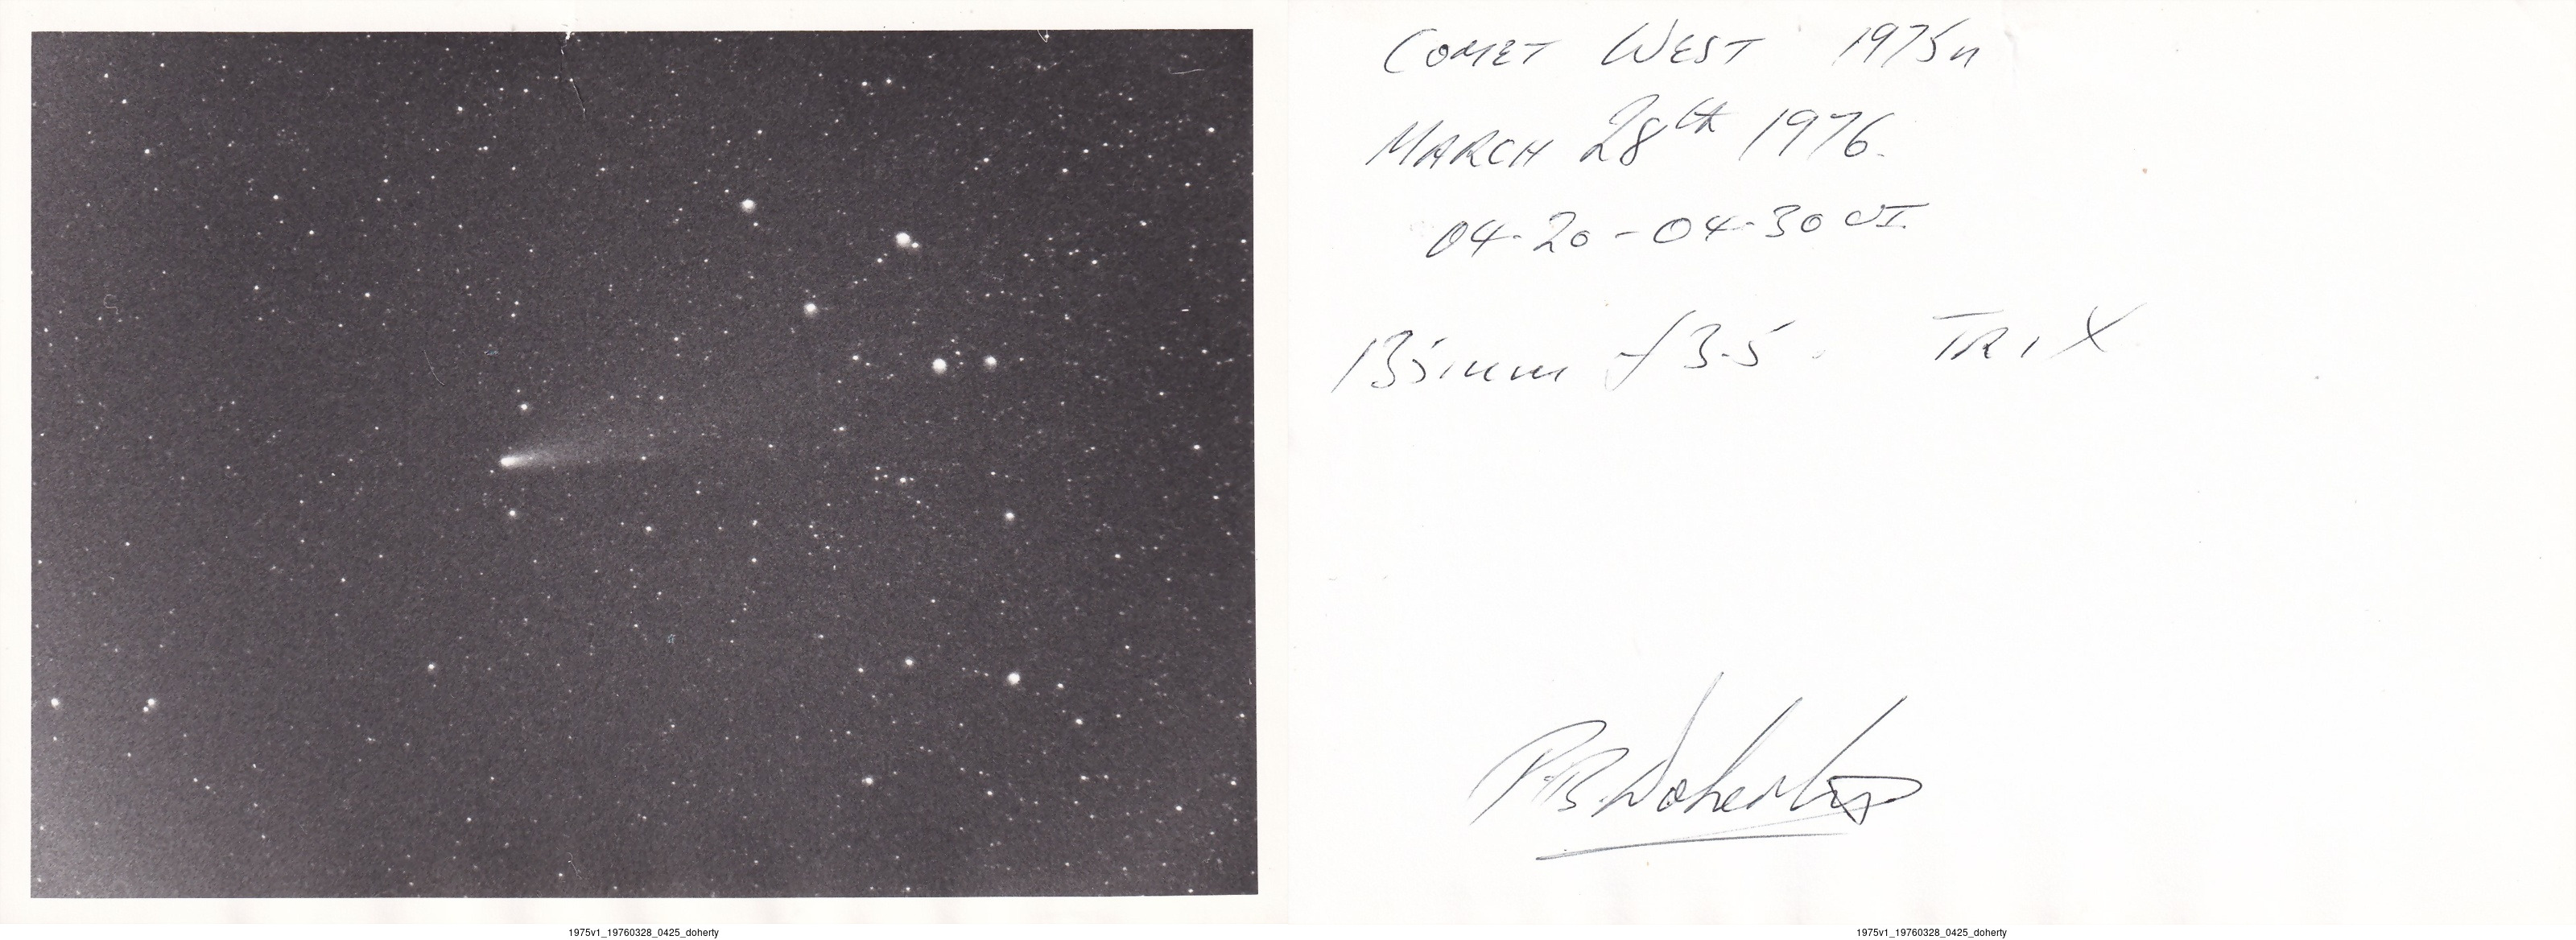 COMET WEST 1975n
MARCH 28th 1976.
04.20 - 04.30 UT.
135mm f3.5. TRI X
P.B. Doherty
1975v1_19760328_0425_doherty
1975v1_19760328_0425_doherty